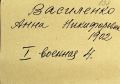 Василенко
Анна Никифоровна
1902
I военная 4.